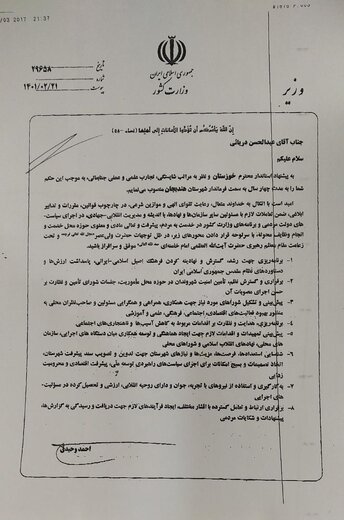 /03 2017 21:37
وزیر
جمهوری اسلامی ایران
وزارت کشور
تاریخ
۲۹۶۵۸
شماره
پیوست ۱۴۰۱/۰۲/۲۱
إِنَّ اللَّهَ يَأْمُرُكُمْ أَن تُؤَدُّوا الْأَمَانَاتِ إِلَىٰ أَهْلِهَا (نساء - ۵۸)
جناب آقای عبدالحسن دریائی
سلام علیکم
به پیشنهاد استاندار محترم خوزستان و نظر به مراتب شایستگی، تجارب علمی و عملی جنابعالی، به موجب این حکم
شما را به مدت چهار سال به سمت فرماندار شهرستان هندیجان منصوب می‌نمایم.
امید است با اتکال به خداوند متعال، رعایت تقوای الهی و موازین شرعی، در چارچوب قوانین، مقررات و تدابیر
ابلاغی، ضمن تعاملات لازم با مسئولین سایر سازمان‌ها و نهادها، با اندیشه و مدیریت انقلابی-جهادی، در اجرای سیاست‌
های دولت مردمی و برنامه‌های وزارت کشور در خدمت به مردم، پیشرفت و ارتقاء مادی و معنوی حوزه محل خدمت و
انجام وظایف محوله، با سرلوحه قرار دادن محورهای زیر، در ظل توجهات حضرت ولی‌عصر و تحت
زعامت مقام معظم رهبری حضرت آیت‌الله العظمی خامنه‌ای موفق و سرافراز باشید.
۱- برنامه‌ریزی جهت رشد، گسترش و نهادینه کردن فرهنگ اصیل اسلامی-ایرانی، پاسداشت ارزش‌ها و
دستاوردهای نظام مقدس جمهوری اسلامی ایران
۲- برقراری و گسترش نظم، تأمین امنیت شهروندان در حوزه محل مأموریت، جلسات شورای تأمین و نظارت بر
حسن اجرای مصوبات آن
۳- پیش‌بینی و تشکیل شوراهای مورد نیاز جهت همکاری، همراهی و همگرایی مسئولین و صاحب‌نظران محلی به
منظور بهبود فعالیت‌های اقتصادی، اجتماعی، فرهنگی، علمی و آموزشی
۴- برنامه‌ریزی، هدایت و نظارت بر اقدامات مربوط به کاهش آسیب‌ها و ناهنجاری‌های اجتماعی
۵- پیش‌بینی تمهیدات و اقدامات لازم جهت ایجاد هماهنگی و توسعه همکاری میان دستگاه های اجرایی، سازمان
های محلی، نهادهای انقلاب اسلامی و شوراهای محلی
۶- شناسایی استعدادها، فرصت‌ها، مزیت‌ها و نیازهای شهرستان جهت تدوین و تصویب سند پیشرفت شهرستان،
اتخاذ تصمیمات و بسیج امکانات برای اجرای سیاست‌های راهبردی توسعه ملی، پیشرفت اقتصادی و محرومیت
زدایی
۷- به کارگیری و استفاده از نیروهای با تجربه، جوان و دارای روحیه انقلابی، ارزشی و تحصیل کرده در مسئولیت
های اجرایی
۸- برقراری ارتباط و تعامل گسترده با اقشار مختلف، ایجاد فرآیندهای لازم جهت دریافت و رسیدگی به گزارش‌ها،
پیشنهادات و شکایات مردمی
احمد وحیدی